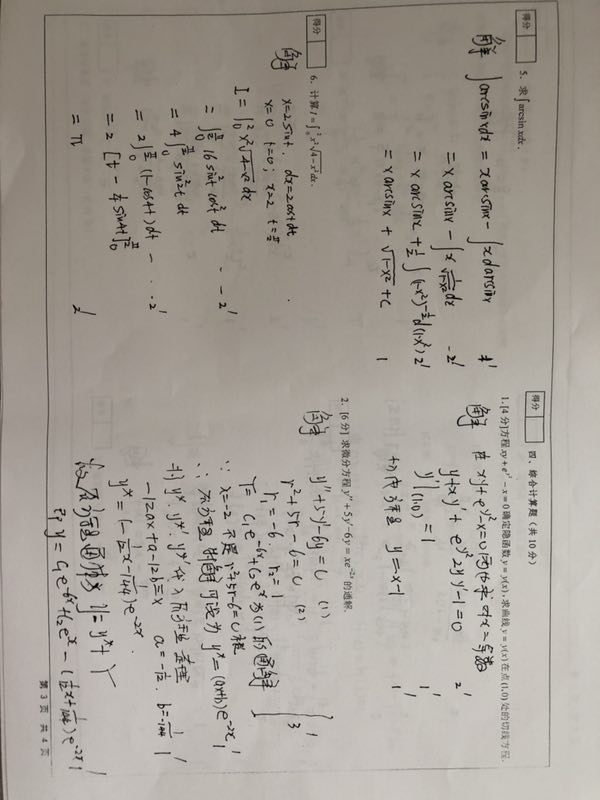 得分
5. 求∫arcsin xdx.
解 ∫arcsinxdx = xarcsinx - ∫x darcsinx 1'
= x arcsinx - ∫x 1/√(1-x²) dx -2'
= x arcsinx + 1/2 ∫(1-x²)^(-1/2) d(1-x²) 2'
= x arcsinx + √(1-x²) + C 1
得分
6. 计算 I=∫₀² x²√(4-x²)dx.
解 x=2sint. dx=2costdt
x=0 t=0; x=2 t=π/2
I = ∫₀² x²√(4-x²) dx
= ∫₀^(π/2) 16sin²t cos²t dt --2'
= 4∫₀^(π/2) sin²2t dt
= 2∫₀^(π/2) (1-cos4t)dt - --2'
= 2 [t - 1/4 sin4t]₀^(π/2)
= π 2'
得分
四、综合计算题（共 10 分）
1.[4 分]方程 xy+e^(y²)-x=0 确定隐函数 y=y(x), 求曲线 y=y(x) 在点(1,0)处的切线方程.
解 在 xy+e^(y²)-x=0 两边求对x=导数
y+xy'+e^(y²)2yy'-1=0 2'
y'|(1,0) = 1 1'
切线方程 y=x-1 1'
2. [6 分] 求微分方程 y''+5y'-6y=xe^(-2x) 的通解.
解 y''+5y'-6y=0 (1)
r²+5r-6=0 (2)
r₁=-6. r₂=1 1 3
Y= C₁e^(-6x)+C₂e^x 为(1)的通解
∵ λ=-2 不是 r²+5r-6=0 根
∴ 原方程 特解可设为 y*=(ax+b)e^(-2x) 1'
将 y*. y*'. y*'' 代入原方程 整理
-12ax+a-12b≡x a=-1/12. b=-1/144 1'
y*=(-1/12x-1/144)e^(-2x).
故原方程通解为 y=y*+Y 1'
即 y=C₁e^(-6x)+C₂e^x-(1/12x+1/144)e^(-2x) 1'
第 3 页 共 4 页